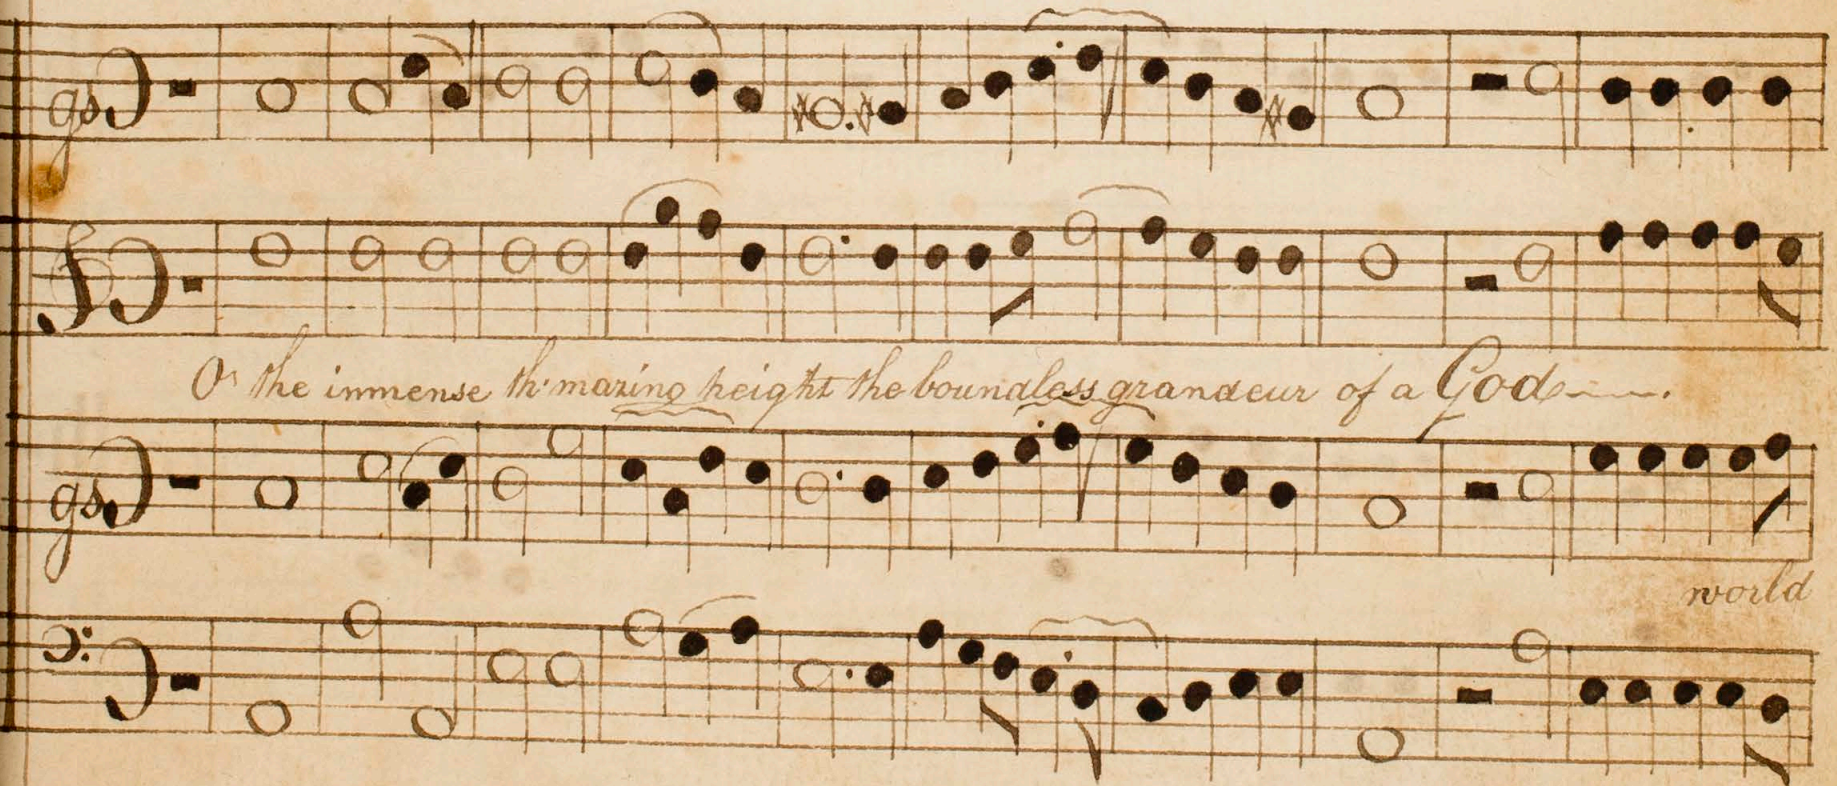 O' the inmense th' mazing height the boundless grandeur of a God
world